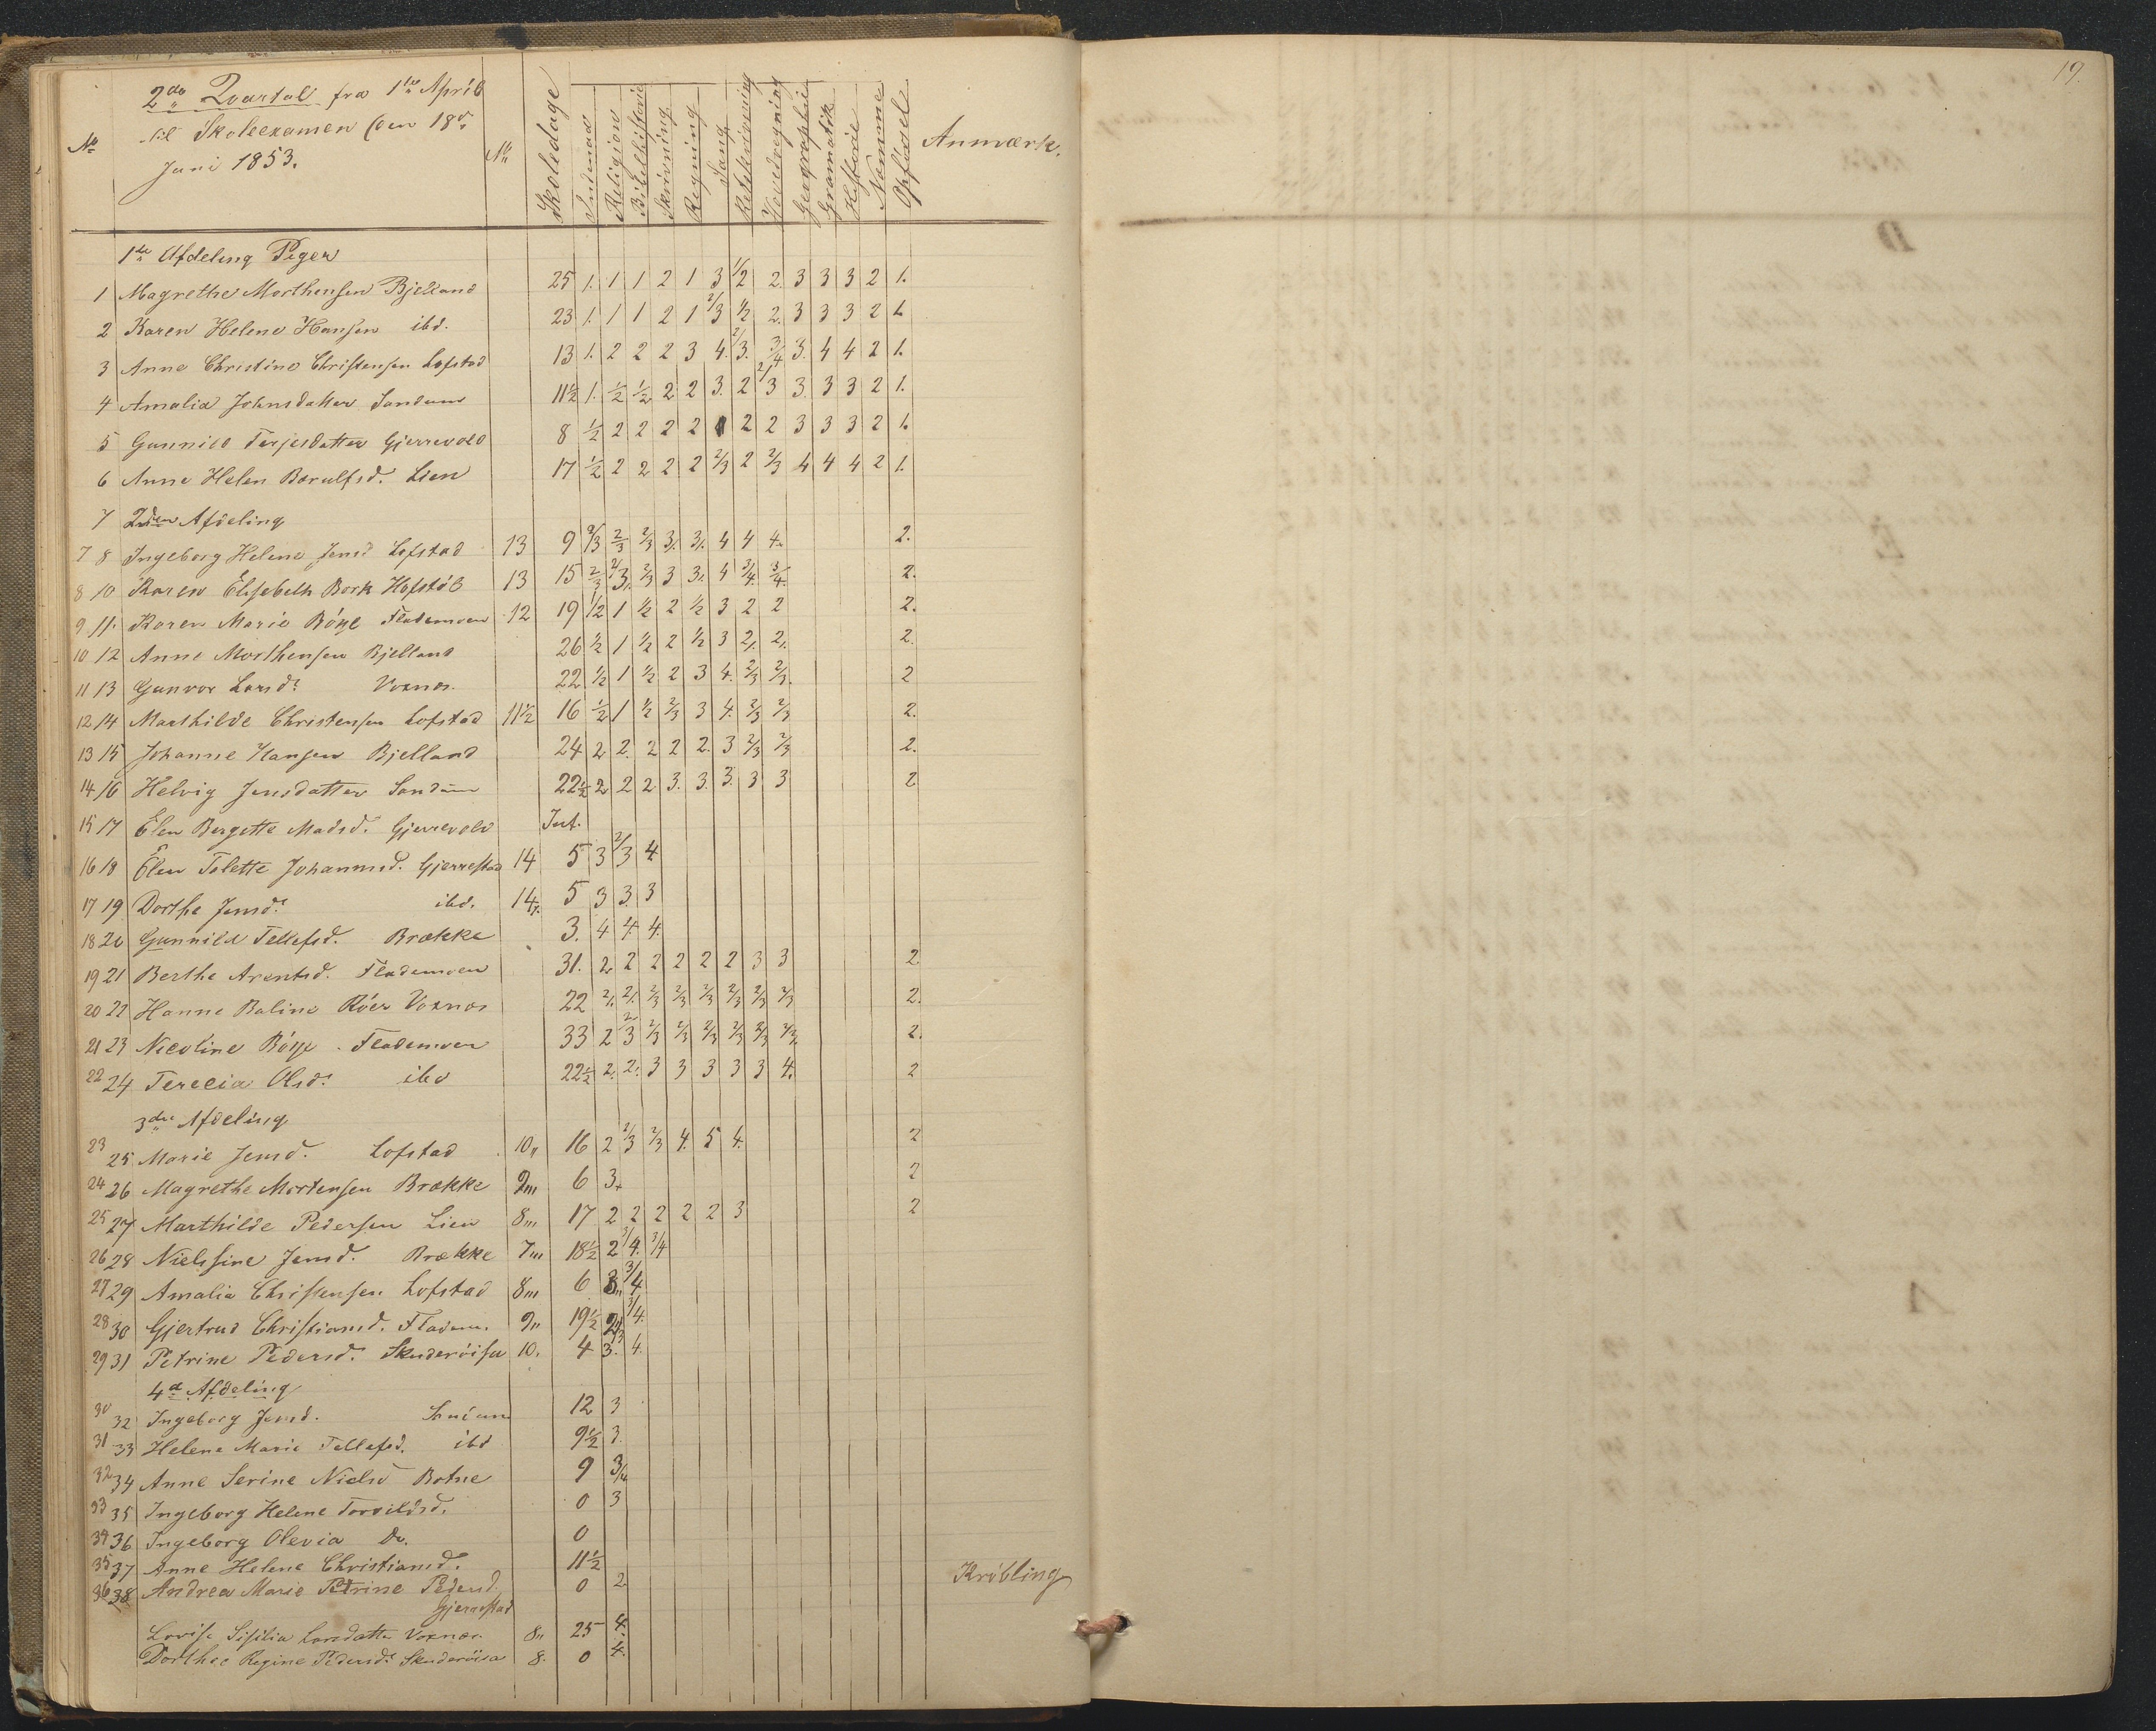 19.
No 2de Qvartal fra 1ste April
til Skoleexamen (den 18de
Juni 1853.
No Skoledage Indenad Religion Bibelhistorie Skrivning Regning Sang Retskrivning Hovedregning Geographie Gramatik Historie Nemme Opførsel Anmærk.
1ste Afdeling Piger
1 Magrethe Morthensen Bjelland 25 1. 1 1 2 1 3 1/2 2. 3 3 3 2 1.
2 Karen Helene Hansen ibd. 23 1. 1 1 2 1 2/3 1/2 2. 3 3 3 2 1.
3 Anne Christine Christensen Lofstad 13 1. 2 2 2 3 4. 2/3. 3/4 3. 4 4 2 1.
4 Amalia Johnsdatter Sandum 11½ 1. 1/2 1/2 2 2 3. 2 2/3 3. 3 3 2 1.
5 Gunnild Terjesdatter Gjerrevold 8 1/2 2 2 2 2 1 2 2 3 3 3 2 1.
6 Anne Helen Bærulfsd. Lien 17 1/2 2 2 2 2 2/3 2 2/3 4 4 4 2 1.
7 2den Afdeling
7 8 Ingeborg Helene Jensd Lofstad 13 9 2/3 2/3 2/3 3. 3. 4 4 4. 2.
8 10 Karen Elisebeth Bork Hofstøl 13 15 2/3 2/3. 2/3 3 3. 4 3/4. 3/4. 2.
9 11. Karen Marie Bóye Flademoen 12 19 1/2 1 1/2 2 1/2 3 2 2 2.
10 12 Anne Morthensen Bjelland 26 1/2 1 1/2 2 1/2 3 2. 2. 2.
11 13 Gunvor Larsd. Voxnos. 22 1/2 1 1/2 2 3 4. 2/3 2/3. 2
12 14 Marthilde Christensen Lofstad 11½ 16 1/2 1 1/2 2/3 3 4. 2/3 2/3 2.
13 15 Johanne Hansen Bjelland 24 2 2. 2 2 2. 3 2/3 2/3 2.
14 16 Helvig Jensdatter Sandum 22½ 2 2 2 3. 3. 3. 3 3 2
15 17 Elen Bergette Madsd. Gjerrevold Int.
16 18 Elen Tolette Johannsd. Gjerrestad 14 5 3 2/3 4
17 19 Dorthe Jensd. ibd. 14. 5 3 3. 3
18 20 Gunnild Tellefsd. Brække 3. 4 4. 4.
19 21 Berthe Arentsd. Flademoen 31. 2 2 2 2 2 2 3 3 2
20 22 Hanne Baline Róer Voxnos 22 2. 2. 2/3 2/3 2/3 2/3 2/3 2/3 2.
21 23 Nicoline Bóye Flademoen 33 2 2/3 2/3 2/3 2/3 2/3 2/3 2/3. 2.
22 24 Terecia Olsd. ibd 22½ 2. 2. 3 3 3 3 3 4. 2
3die Afdeling
23 25 Marie Jensd. Lofstad 10 16 2 2/3 2/3 4. 5 4. 2
24 26 Magrethe Mortensen Brække 9 6 3. 2
25 27 Marthilde Pedersen Lien 8 17 2 2 2 2 2 3 2
26 28 Nielsine Jensd. Brække 7 18½ 2 3/4. 3/4
27 29 Amalia Christensen Lofstad 8 6 3 3/4
28 30 Gjertrud Christiansd. Fladem. 9 19½ 2/3 3/4.
29 31 Petrine Pedersd. Skuderóisa 10. 4 3. 4.
4d Afdeling
30 32 Ingeborg Jensd. 12 3
31 33 Helene Marie Tellefsd. ibd 9½ 3.
32 34 Anne Serine Nielsd Botne 9 3/4
33 35 Ingeborg Helene Torvildsd. 0 3
34 36 Ingeborg Olevia Do. 0
35 37 Anne Helene Christiansd. 11½
36 38 Andrea Marie Petrine Pedersd. 0 2 Krøbling
Gjerrestad
Lovise Sisilia Larsdatter Voxnos 8 25 4.
Dorthee Regine Pedersd. Skuderóisa 8. 0 4.